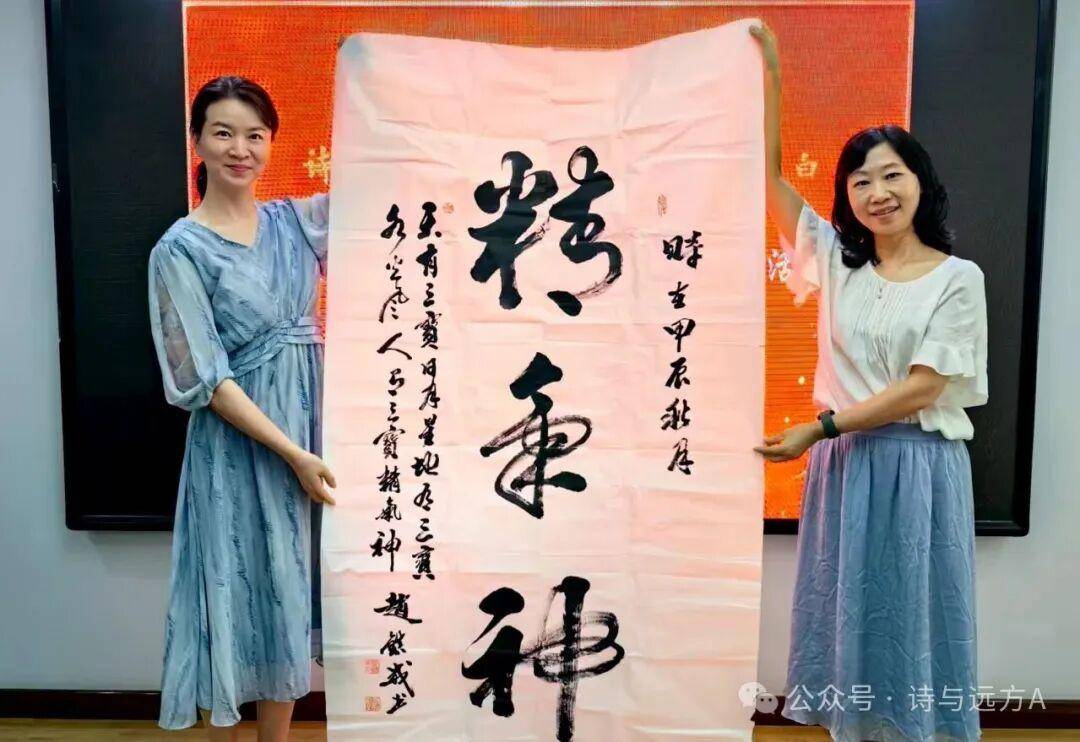 時在甲辰秋月
精氣神
天有三寶日月星地有三寶
水火风人有三寶精氣神 趙 成书
诗
白
活
公众号 · 诗与远方A